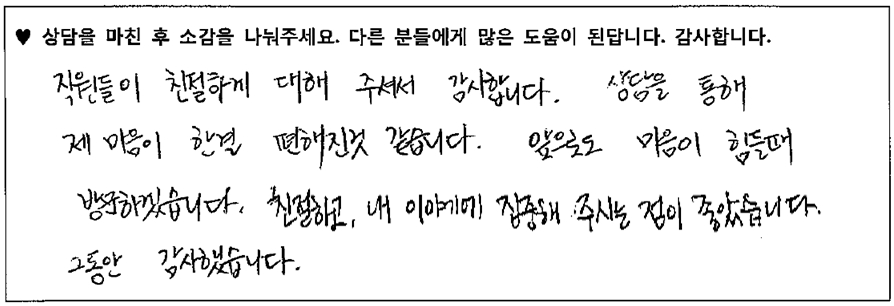 ♥ 상담을 마친 후 소감을 나눠주세요. 다른 분들에게 많은 도움이 된답니다. 감사합니다.
직원들이 친절하게 대해 주셔서 감사합니다. 상담을 통해
제 마음이 한결 편해진것 같습니다. 앞으로도 마음이 힘들때
방문하겠습니다. 친절하고, 내 이야기에 집중해 주시는 점이 좋았습니다.
그동안 감사했습니다.